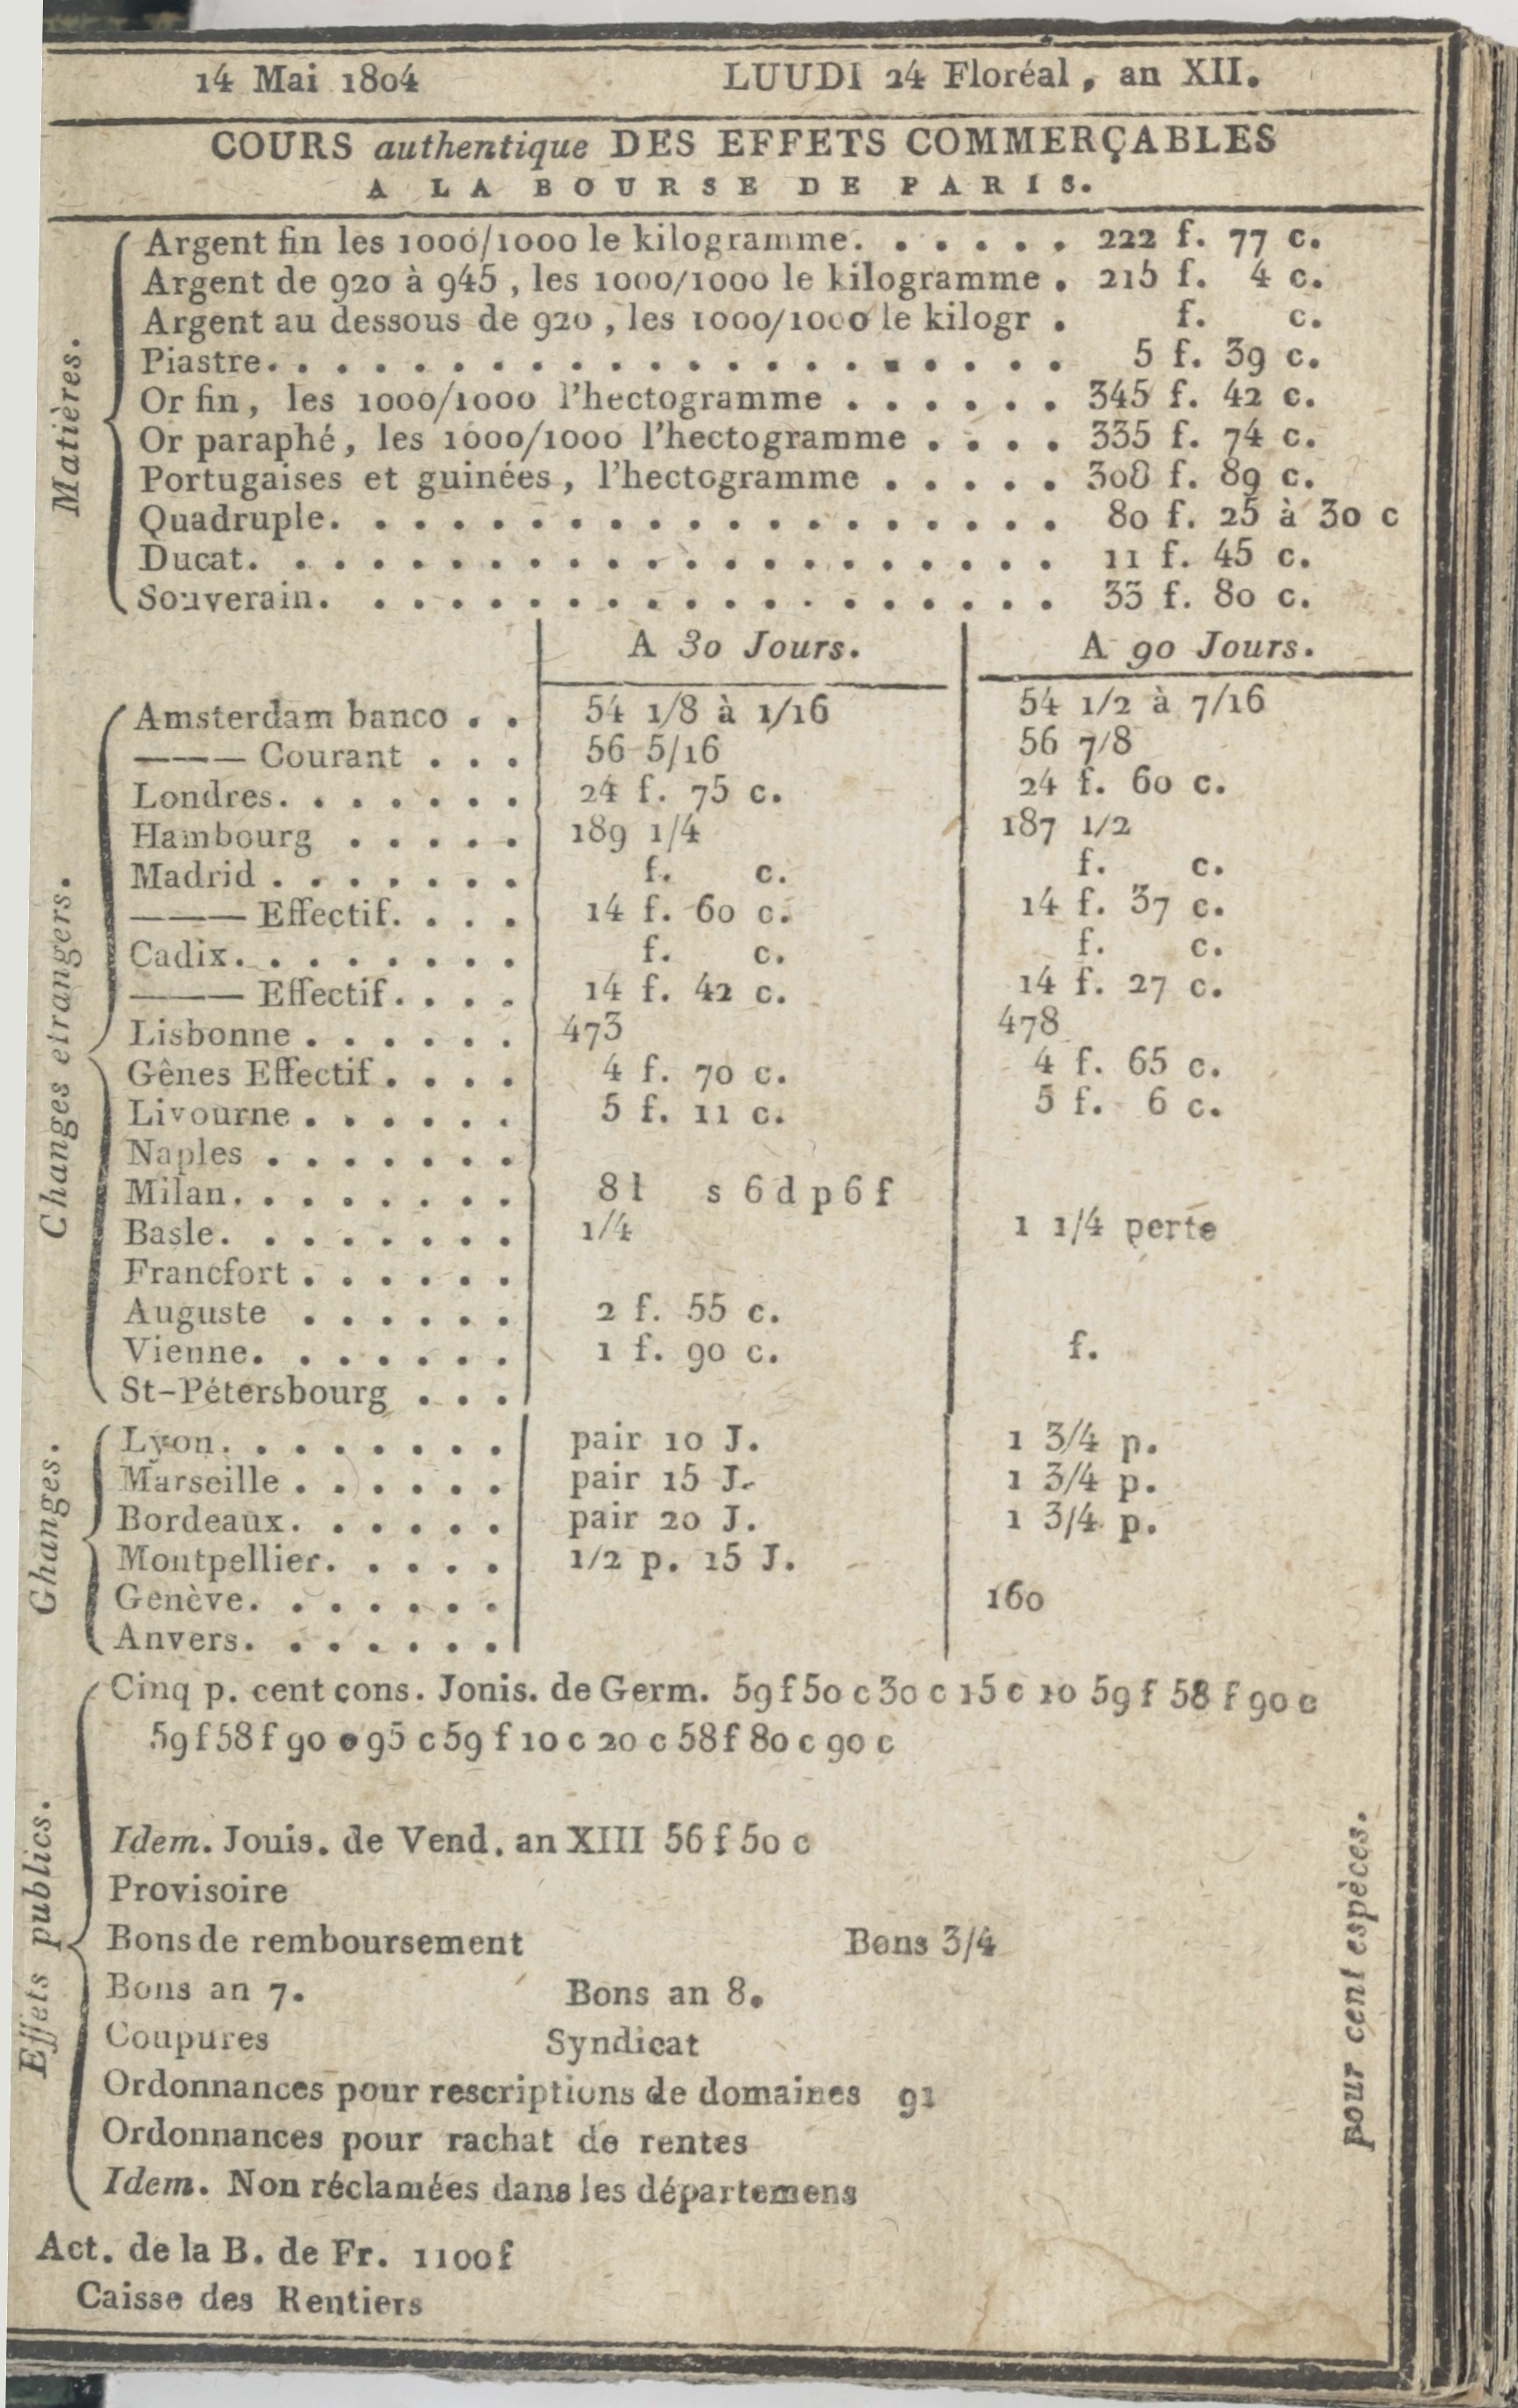 14 Mai 1804 LUUDI 24 Floréal, an XII.
COURS authentique DES EFFETS COMMERÇABLES
A LA BOURSE DE PARIS.
Matières.
Argent fin les 1000/1000 le kilogramme. . . . . . 222 f. 77 c.
Argent de 920 à 945, les 1000/1000 le kilogramme . 215 f. 4 c.
Argent au dessous de 920, les 1000/1000 le kilogr . f. c.
Piastre. . . . . . . . . . . . . . . . . . . . . 5 f. 39 c.
Or fin, les 1000/1000 l'hectogramme . . . . . . 345 f. 42 c.
Or paraphé, les 1000/1000 l'hectogramme . . . . 335 f. 74 c.
Portugaises et guinées, l'hectogramme . . . . . 308 f. 89 c.
Quadruple. . . . . . . . . . . . . . . . . . . 80 f. 25 à 30 c
Ducat. . . . . . . . . . . . . . . . . . . . . 11 f. 45 c.
Souverain. . . . . . . . . . . . . . . . . . . 33 f. 80 c.
A 30 Jours. A 90 Jours.
Changes etrangers.
Amsterdam banco . . 54 1/8 à 1/16 54 1/2 à 7/16
——— Courant . . . 56 5/16 56 7/8
Londres. . . . . . . 24 f. 75 c. 24 f. 60 c.
Hambourg . . . . . 189 1/4 187 1/2
Madrid . . . . . . . f. c. f. c.
——— Effectif. . . . 14 f. 60 c. 14 f. 37 c.
Cadix. . . . . . . . f. c. f. c.
——— Effectif. . . . 14 f. 42 c. 14 f. 27 c.
Lisbonne . . . . . . 473 478
Gênes Effectif . . . . 4 f. 70 c. 4 f. 65 c.
Livourne . . . . . . 5 f. 11 c. 5 f. 6 c.
Naples . . . . . . .
Milan. . . . . . . . 8 l s 6 d p 6 f
Basle. . . . . . . . 1/4 1 1/4 perte
Francfort . . . . . .
Auguste . . . . . . 2 f. 55 c.
Vienne. . . . . . . 1 f. 90 c. f.
St-Pétersbourg . . .
Ghanges.
Lyon. . . . . . . . pair 10 J. 1 3/4 p.
Marseille . . . . . . pair 15 J. 1 3/4 p.
Bordeaux. . . . . . pair 20 J. 1 3/4 p.
Montpellier. . . . . 1/2 p. 15 J.
Genève. . . . . . . 160
Anvers. . . . . . .
Effets publics.
Cinq p. cent cons. Jonis. de Germ. 59 f 50 c 30 c 15 c 10 59 f 58 f 90 c
59 f 58 f 90 c 95 c 59 f 10 c 20 c 58 f 80 c 90 c
Idem. Jouis. de Vend. an XIII 56 f 50 c
Provisoire
Bons de remboursement Bons 3/4
Bons an 7. Bons an 8.
Coupures Syndicat
Ordonnances pour rescriptions de domaines 91
Ordonnances pour rachat de rentes
Idem. Non réclamées dans les départemens
pour cent espèces.
Act. de la B. de Fr. 1100 f
Caisse des Rentiers